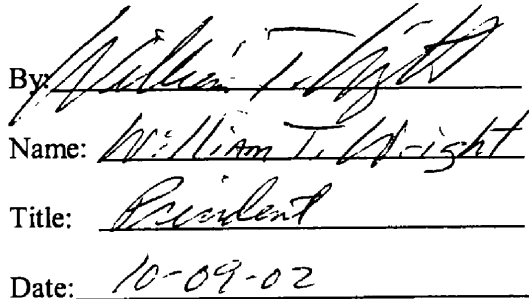 By: William T. Wright
Name: William T. Wright
Title: President
Date: 10-09-02